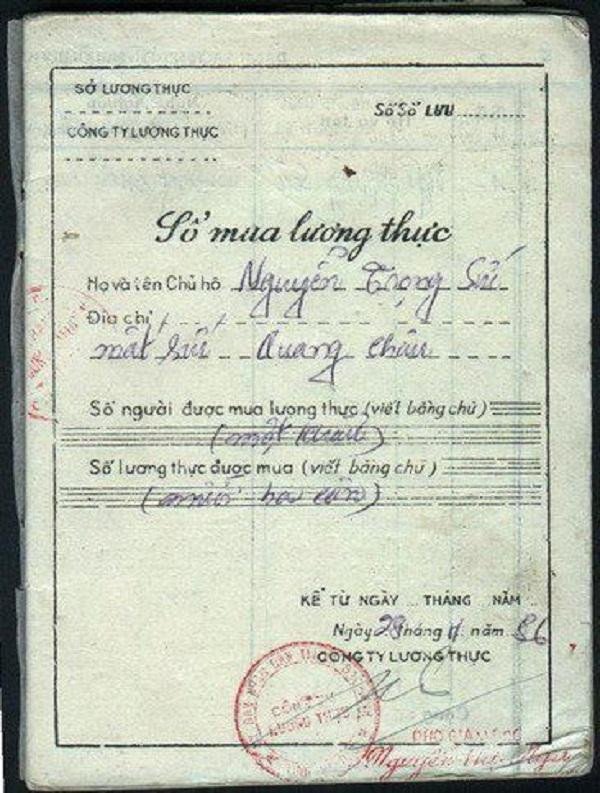 SỞ LƯƠNG THỰC
Số Sổ LƯU
CÔNG TY LƯƠNG THỰC
Sổ mua lương thực
Họ và tên Chủ hộ Nguyễn Trọng Sử
Địa chỉ
Quang Châu
Số người được mua lương thực (viết bằng chữ)
(một khẩu)
Số lương thực được mua (viết bằng chữ)
(mười ba cân)
KỂ TỪ NGÀY THÁNG NĂM
Ngày 28 tháng 11 năm 86
CÔNG TY LƯƠNG THỰC
CÔNG TY
LƯƠNG THỰC
PHÓ GIÁM ĐỐC
Nguyễn